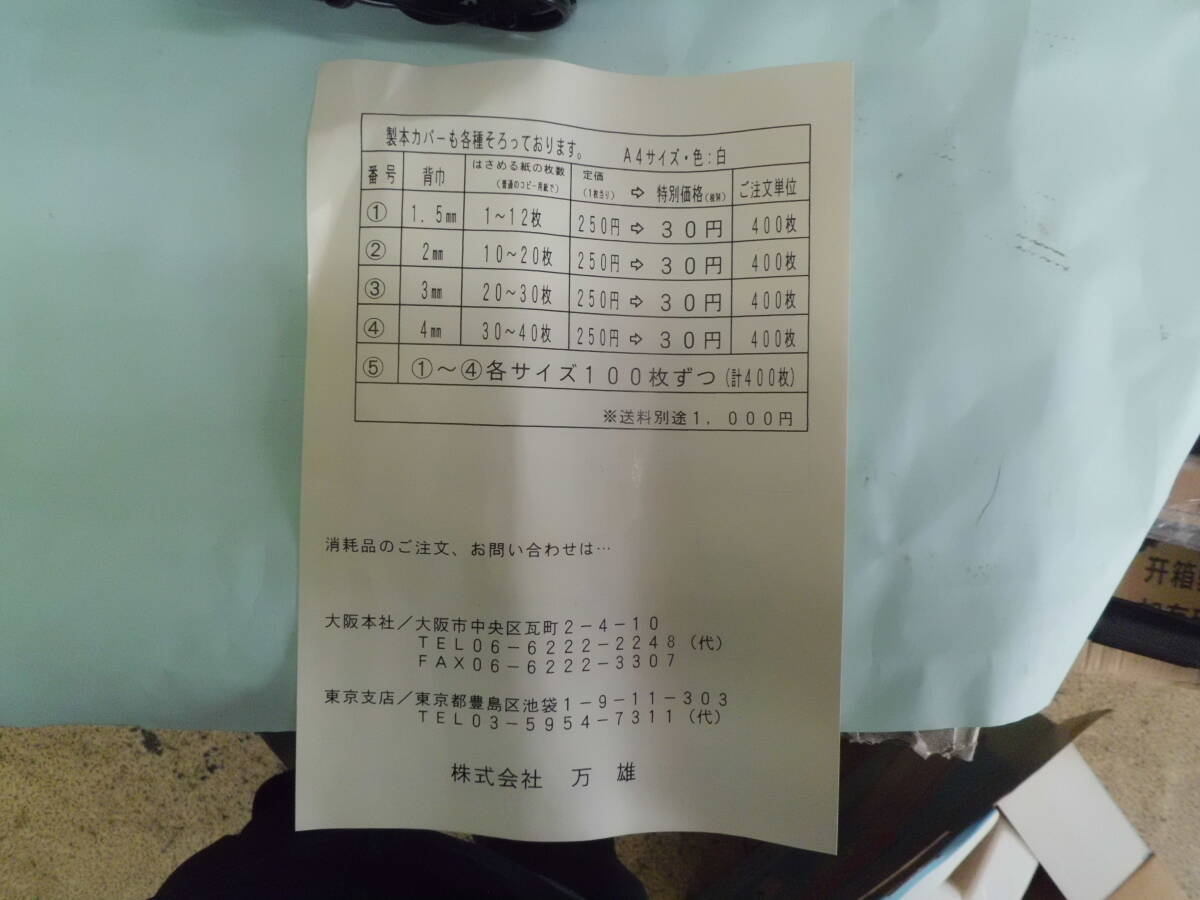 製本カバーも各種そろっております。 A4サイズ・色:白
番号 背巾 はさめる紙の枚数(普通のコピー用紙で) 定価(1枚当り) ⇨ 特別価格(税別) ご注文単位
① 1.5㎜ 1~12枚 250円 ⇨ 30円 400枚
② 2㎜ 10~20枚 250円 ⇨ 30円 400枚
③ 3㎜ 20~30枚 250円 ⇨ 30円 400枚
④ 4㎜ 30~40枚 250円 ⇨ 30円 400枚
⑤ ①~④各サイズ100枚ずつ(計400枚)
※送料別途1,000円
消耗品のご注文、お問い合わせは…
大阪本社/大阪市中央区瓦町2-4-10
TEL06-6222-2248(代)
FAX06-6222-3307
東京支店/東京都豊島区池袋1-9-11-303
TEL03-5954-7311(代)
株式会社 万 雄
开箱